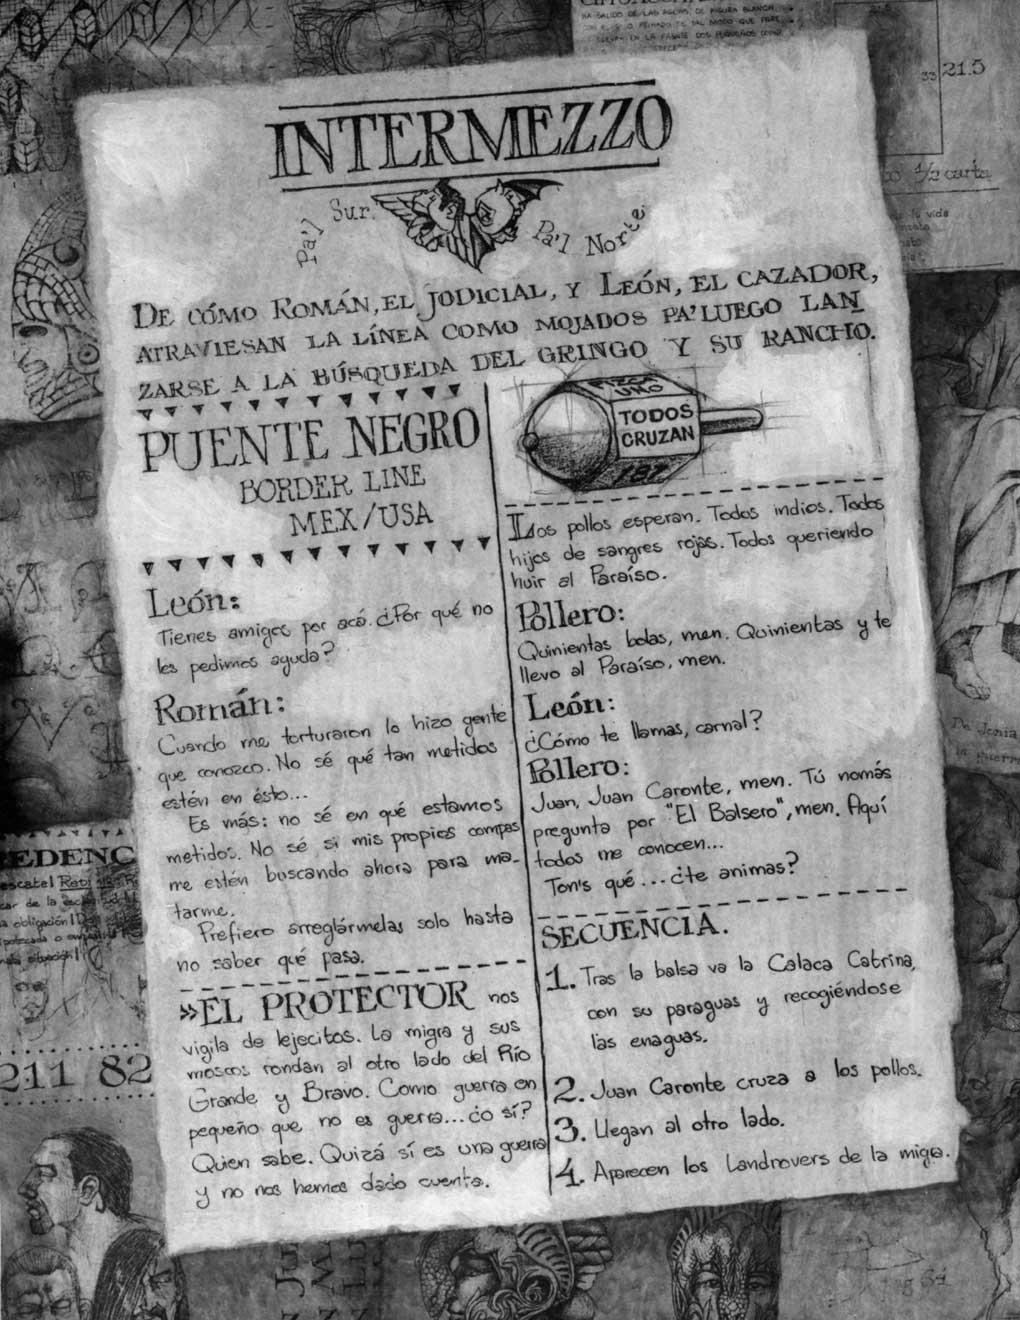 INTERMEZZO
Pa'l Sur.
Pa'l Norte.
DE CÓMO ROMÁN, EL JODICIAL, Y LEÓN, EL CAZADOR,
ATRAVIESAN LA LÍNEA COMO MOJADOS PA'LUEGO LAN
ZARSE A LA BÚSQUEDA DEL GRINGO Y SU RANCHO.
PUENTE NEGRO
BORDER LINE
MEX/USA
León:
Tienes amigos por acá. ¿Por qué no
les pedimos ayuda?
Román:
Cuando me torturaron lo hizo gente
que conozco. No sé qué tan metidos
estén en ésto...
Es más: no sé en qué estamos
metidos. No sé si mis propios compas
me estén buscando ahora para ma-
tarme.
Prefiero arreglármelas solo hasta
no saber qué pasa.
»EL PROTECTOR nos
vigila de lejecitos. La migra y sus
moscos rondan al otro lado del Río
Grande y Bravo. Como guerra en
pequeño que no es guerra...¿o sí?
Quien sabe. Quizá sí es una guerra
y no nos hemos dado cuenta.
PIZCA
UNO
TODOS
CRUZAN
187
Los pollos esperan. Todos indios. Todos
hijos de sangres rojas. Todos queriendo
huir al Paraíso.
Pollero:
Quinientas bolas, men. Quinientas y te
llevo al Paraíso, men.
León:
¿Cómo te llamas, carnal?
Pollero:
Juan, Juan Caronte, men. Tú nomás
pregunta por "El Balsero", men. Aquí
todos me conocen...
Ton's qué...¿te animas?
SECUENCIA.
1. Tras la balsa va la Calaca Catrina,
con su paraguas y recogiéndose
las enaguas.
2. Juan Caronte cruza a los pollos.
3. Llegan al otro lado.
4. Aparecen los Landrovers de la migra.
33 21.5
1/2 carta
EDENC
211 82